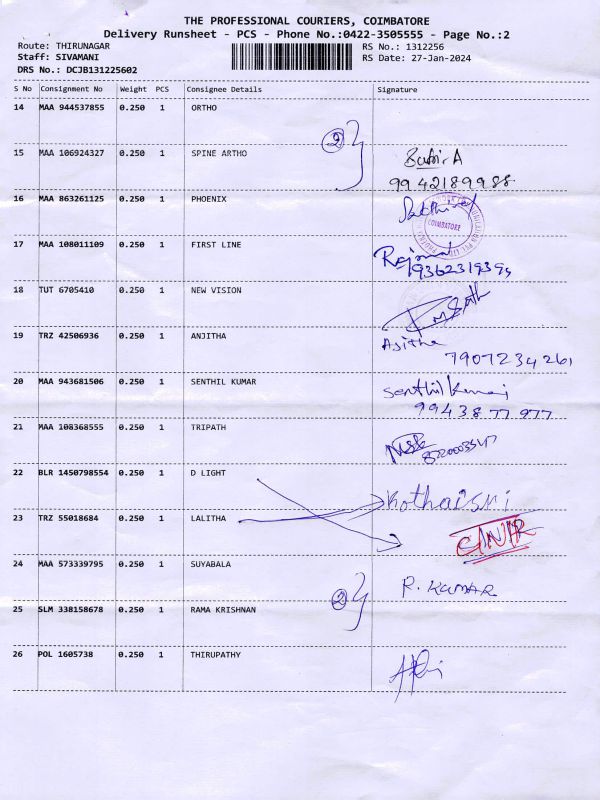 THE PROFESSIONAL COURIERS, COIMBATORE
Delivery Runsheet - PCS - Phone No.:0422-3505555 - Page No.:2
Route: THIRUNAGAR RS No.: 1312256
Staff: SIVAMANI RS Date: 27-Jan-2024
DRS No.: DCJB131225602
S No Consignment No Weight PCS Consignee Details Signature
14 MAA 944537855 0.250 1 ORTHO
2
15 MAA 106924327 0.250 1 SPINE ARTHO
Babi.A
9942189988
16 MAA 863261125 0.250 1 PHOENIX
COIMBATORE
17 MAA 108011109 0.250 1 FIRST LINE
18 TUT 6705410 0.250 1 NEW VISION
19 TRZ 42506936 0.250 1 ANJITHA Ajitha
7907234261
20 MAA 943681506 0.250 1 SENTHIL KUMAR Senthil Kumar
9943877977
21 MAA 108368555 0.250 1 TRIPATH
22 BLR 1450798554 0.250 1 D LIGHT
Kothaisri
23 TRZ 55018684 0.250 1 LALITHA
24 MAA 573339795 0.250 1 SUYABALA
R. KUMAR
2
25 SLM 338158678 0.250 1 RAMA KRISHNAN
26 POL 1605738 0.250 1 THIRUPATHY